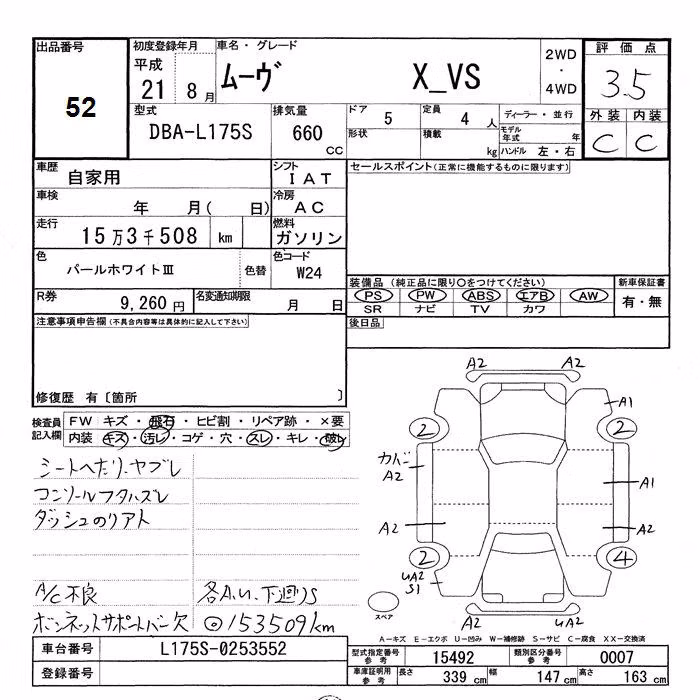 出品番号 初度登録年月 車名・グレード 2WD・4WD 評価点
52 平成 21 8月 ムーヴ X_VS 3.5
型式 排気量 ドア 5 定員 4人 ディーラー・並行 外装 内装
DBA-L175S 660 CC 形状 積載 kg モデル年式 年 ハンドル 左・右 C C
車歴 自家用 シフト IAT セールスポイント(正常に機能するものに限ります)
車検 年 月( 日) 冷房 AC
走行 15万3千508 km 燃料 ガソリン
色 パールホワイトⅢ 色替 色コード W24
装備品 (純正品に限り〇をつけてください) 新車保証書
R券 9,260円 名変通知期限 月 日 PS PW ABS エアB AW 有・無
SR ナビ TV カワ
注意事項申告欄(不具合内容等は具体的に記入して下さい) 後日品
修復歴 有〔箇所 〕
検査員記入欄 FW キズ・飛石・ヒビ割・リペア跡・×要
内装 キズ・汚レ・コゲ・穴・スレ・キレ・破レ
シートヘたり.ヤブレ
コンソールフタハズレ
ダッシュのリアト
A/C不良 各A.U. 下廻りS
ボンネットサポートバー欠 ◎153509km
A2 A2
A1
2 2
カバー A2
A1
A2 A2
2 4
UA2 S1
スペア
A2 UA2
A-キズ E-エクボ U-凹み W-補修跡 S-サビ C-腐食 XX-交換済
車台番号 L175S-0253552 型式指定番号 参考 15492 類別区分番号 参考 0007
登録番号 車庫証明用 参考 長さ 339 cm 幅 147 cm 高さ 163 cm